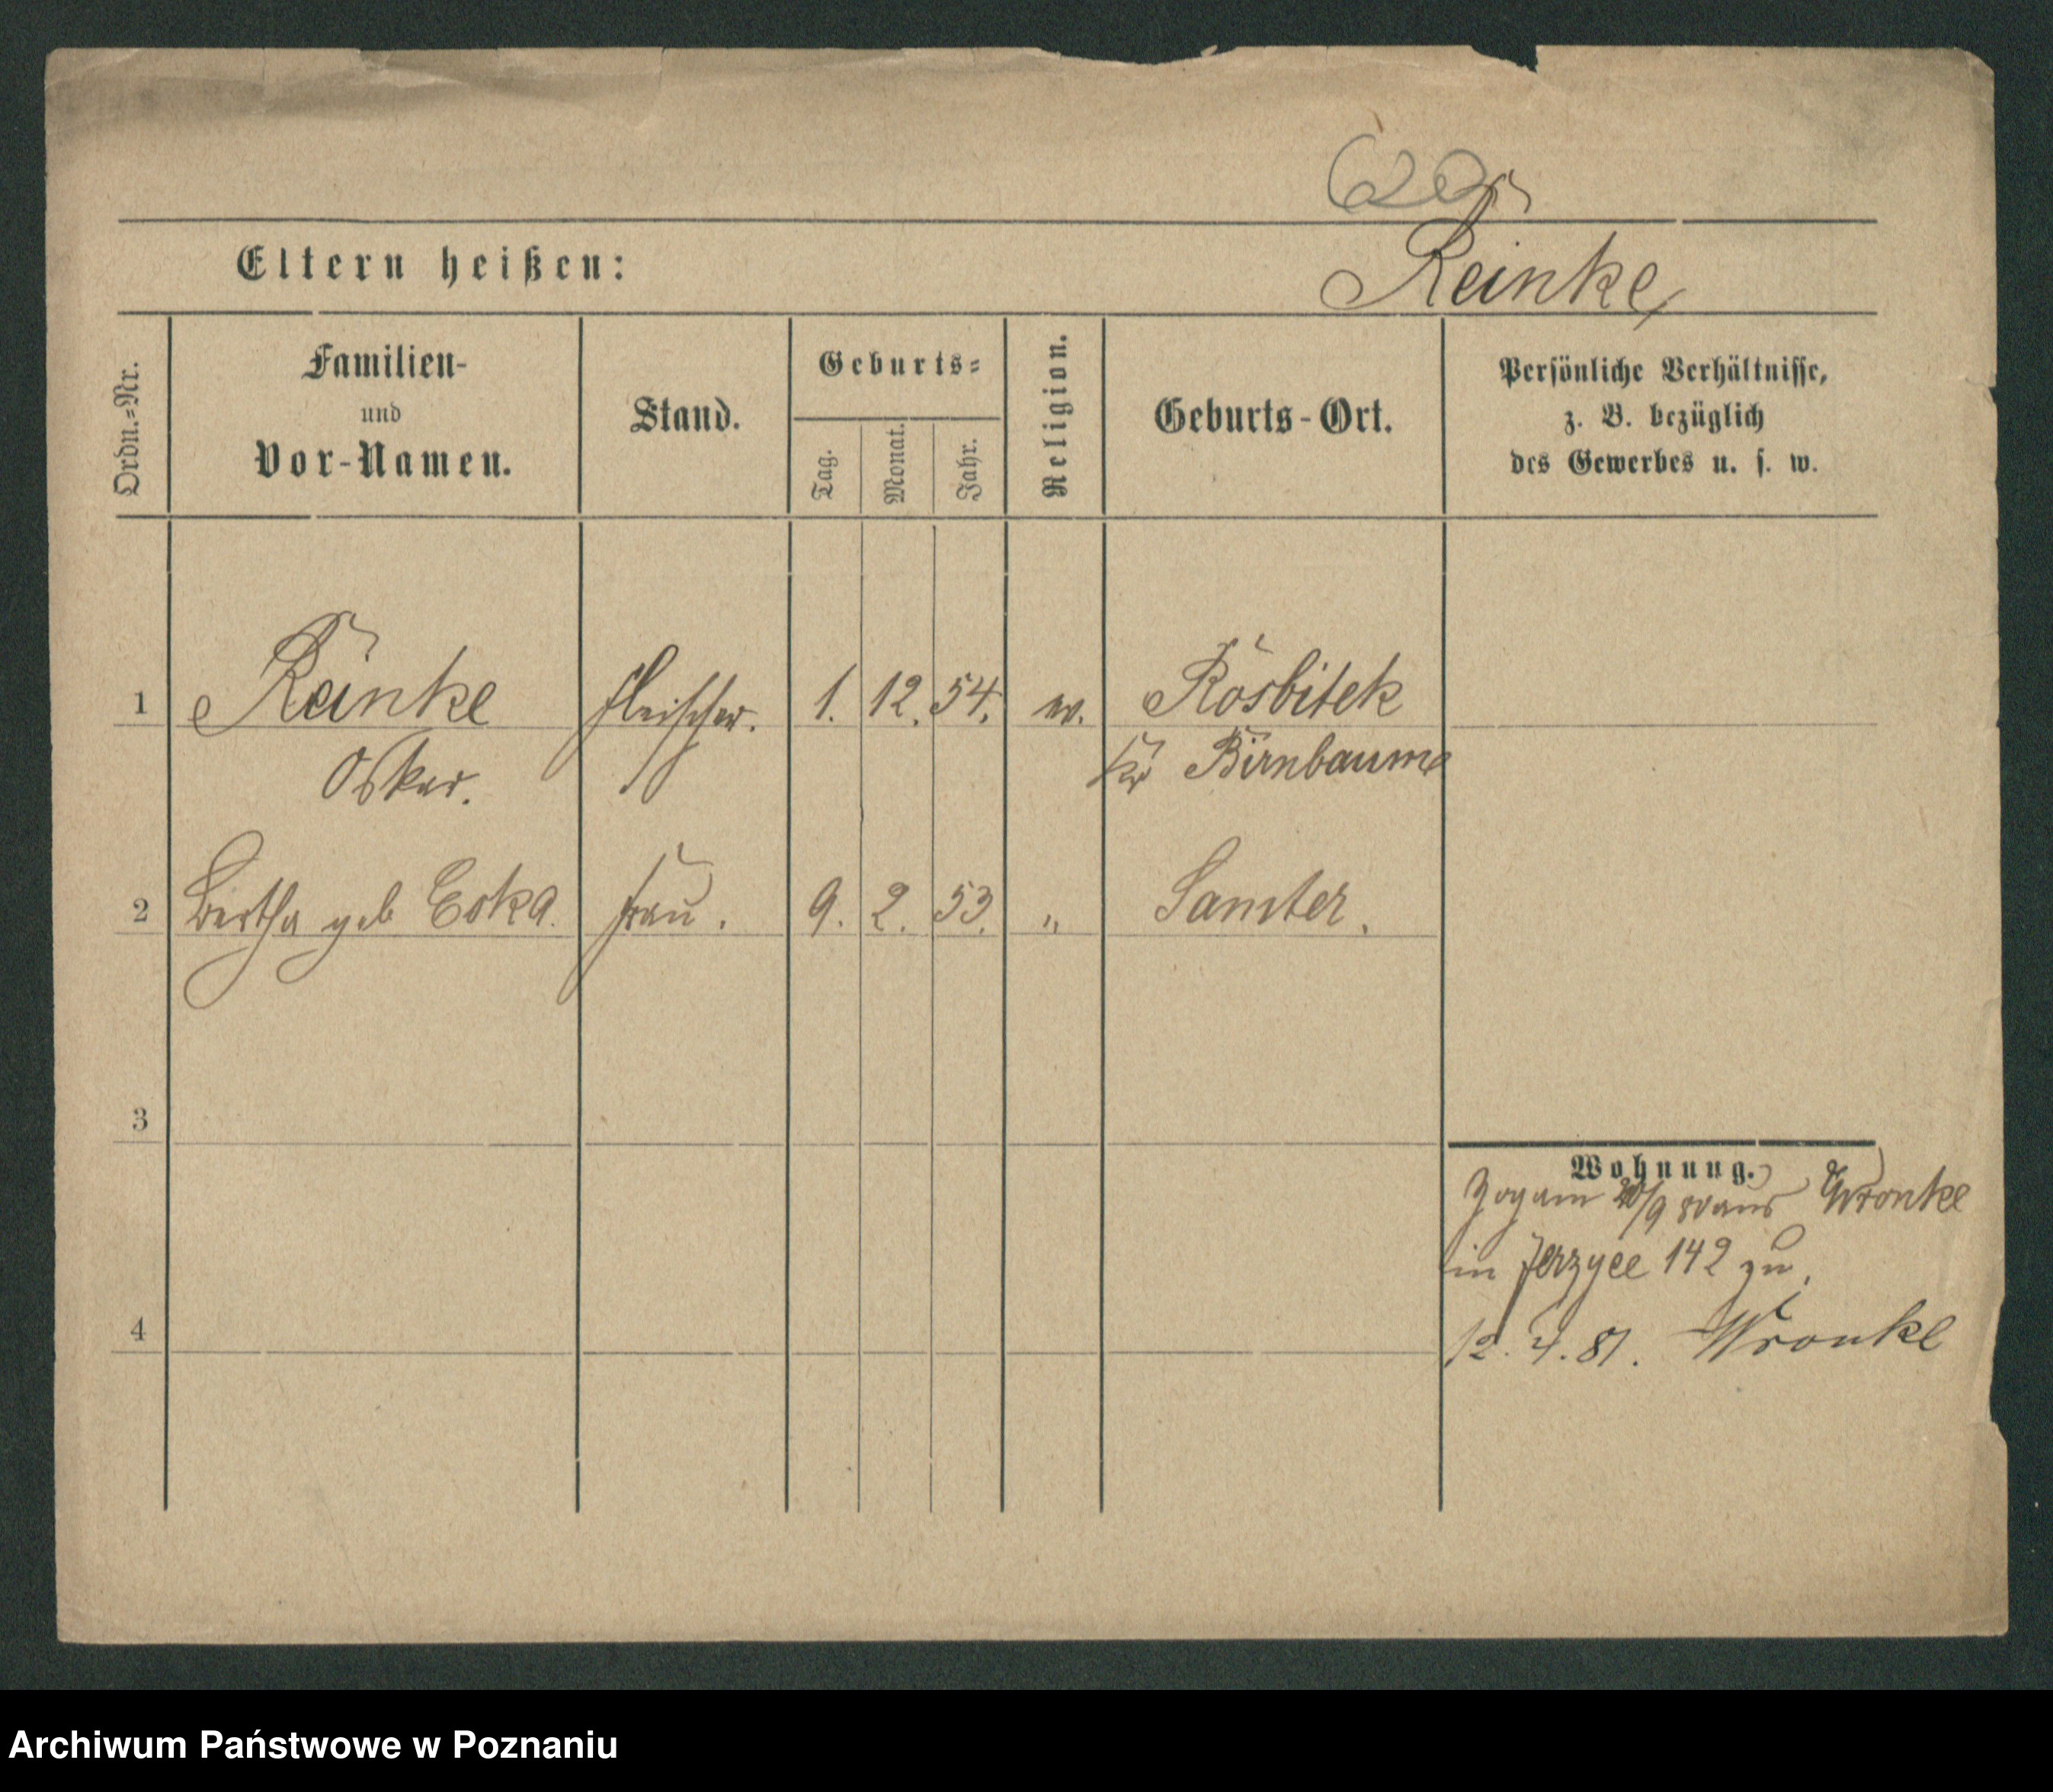 Reinke
Eltern heißen:
Ordn.-Nr.
Familien-
und
Vor-Namen.
Stand.
Geburts-
Tag.
Monat.
Jahr.
Religion.
Geburts-Ort.
Persönliche Verhältnisse,
z. B. bezüglich
des Gewerbes u. s. w.
1 Reinke Fleischer. 1. 12. 54. ev. Rosbitek
Oskar. Kr Birnbaum
2 Bertha geb Frau. 9. 2. 53. " Samter.
3
4
Wohnung.
Zog am 20/9 80 aus Wronke
in Jerzyce 142 zu.
12. 4. 81. Wronke
Archiwum Państwowe w Poznaniu